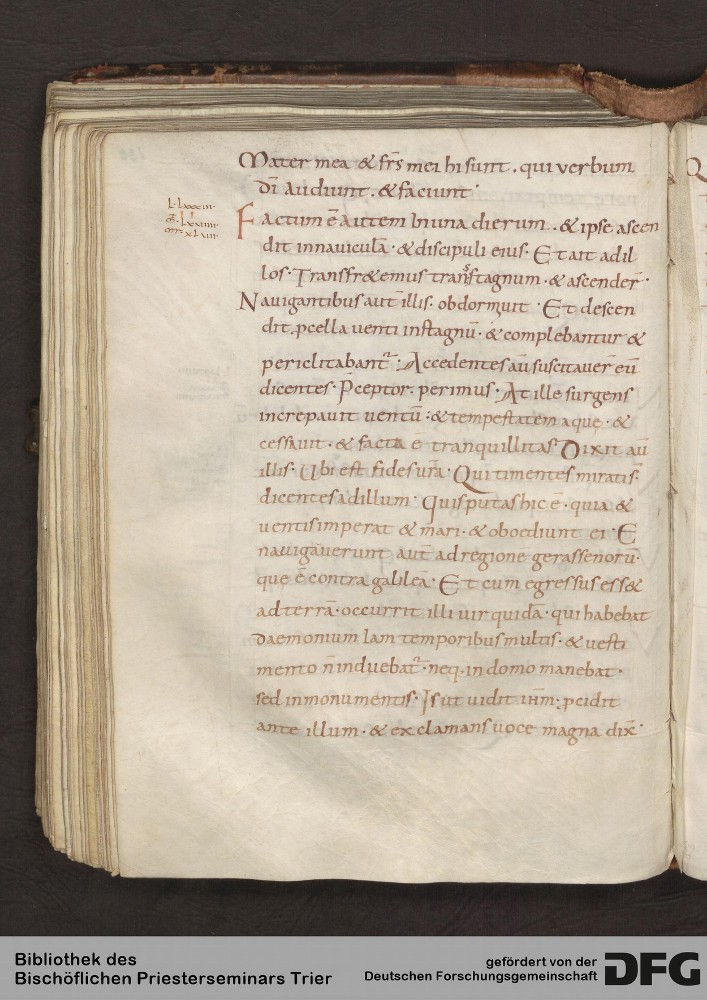 Mater mea & frs̄ mei hi sunt . qui verbum
dī audiunt . & faciunt ·
L · Lxxxiii ·
m̄r · xLvii ·
Factum ē autem in una dierum . & ipse ascen
dit in naviculā · & discipuli eius · Et ait ad il
los · Transfr&emus trans stagnum · & ascender̄ ·
Navigantibus aut̄ illis · obdormuit · Et descen
dit pcella venti in stagnū · & complebantur &
periclitabant᷑ : Accedentes aū suscitauer̄ eū
dicentes · P̄ceptor · perimus · At ille surgens
increpauit ventū : & tempestatem aque · &
cessauit · & facta ē tranquillitas Dixit aū
illis · Ubi est fides ur̄a · Qui timentes mirati s̄ ·
dicentes ad illum · Quis putas hic ē · quia &
uentis imperat & mari · & oboediunt ei · E
nauigauerunt aut̄ ad regione gerassenorū ·
que ē contra galileā · Et cum egressus ess&
ad terrā · occurrit illi uir quidā · qui habebat
daemonium iam temporibus multis · & uesti
mento n̄ induebat᷑ · neq · in domo manebat ·
sed in monumentis · Is ut uidit ihm̄ · pcidit
ante illum · & exclamans uoce magna dix̄ ·
Bibliothek des
Bischöflichen Priesterseminars Trier
gefördert von der
Deutschen Forschungsgemeinschaft
DFG